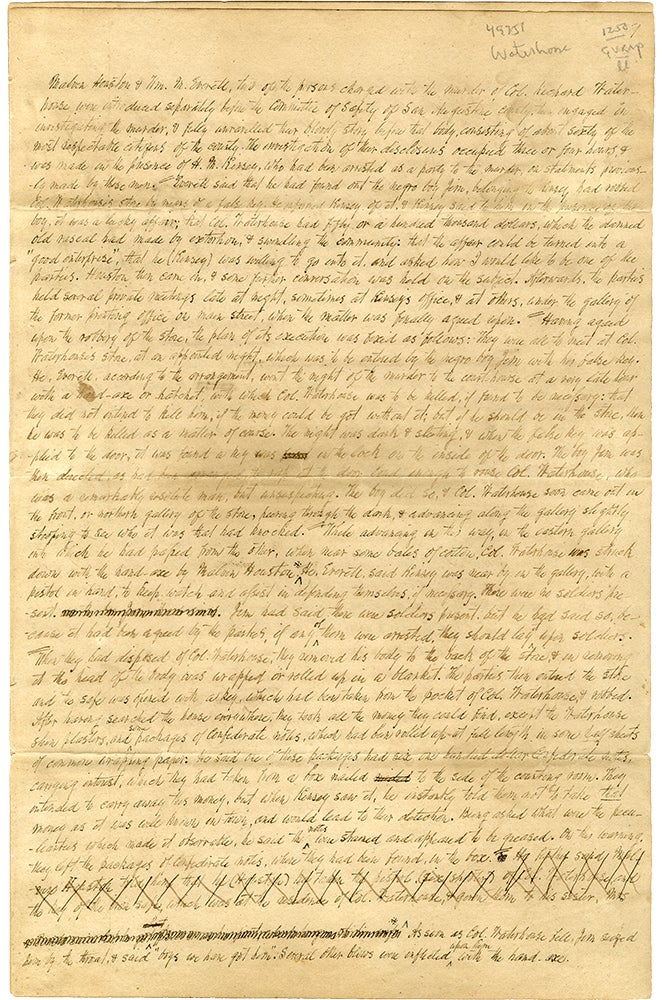 49251
1250-
Waterhouse
Malvin Houston & Wm. M. Everett, two of the persons charged with the murder of Col. Richard Water-
house were introduced separately before the Committee of Safety of San Augustine county, then engaged in
investigating the murder, & fully unravelled their bloody story before that body, consisting of about sixty of the
most respectable citizens of the county. The investigation of their disclosures occupied three or four hours, &
was made in the presence of H. M. Kinsey, who had been arrested as a party to the murder, on statements previous-
ly made by these men. Everett said that he had found out the negro boy Jim, belonging to Kinsey, had robbed
Col. Waterhouse's store by means of a false key. He informed Kinsey of it, & Kinsey said to him in the presence of the
boy, it was a lucky affair; that Col. Waterhouse had fifty or a hundred thousand dollars, which the damned
old rascal had made by extortion, & swindling the community: that the affair could be turned into a
good enterprise, that he (Kinsey) was willing to go into it, and asked how I would like to be one of the
parties. Houston then came in, & some further conversation was held on the subject. Afterwards, the parties
held several private meetings late at night, sometimes at Kinsey's office, & at others, under the gallery of
the former printing office on main street, when the matter was finally agreed upon. Having agreed
upon the robbery of the store, the plan of its execution was fixed as follows: they were all to meet at Col.
Waterhouse's store, at an appointed night, which was to be entered by the negro boy Jim with his false key.
He, Everett, according to the arrangement, went the night of the murder to the courthouse at a very late hour
with a hand-axe or hatchet, with which Col. Waterhouse was to be killed, if found to be necessary: that
they did not intend to kill him, if the money could be got without it; but if he should be in the store, then
he was to be killed as a matter of course. The night was dark & sleeting, & when the false key was ap-
plied to the door, it was found a key was in the lock on the inside of the door. The boy Jim was
then directed, as he to at the door loud enough to rouse Col. Waterhouse, who
was a remarkably resolute man, but unsuspecting. The boy did so, & Col. Waterhouse soon came out on
the front, or northern gallery of the store, peering through the dark, & advancing along the gallery slightly
stooping to see who it was that had knocked. While advancing in this way, on the eastern gallery
onto which he had passed from the other, when near some bales of cotton, Col. Waterhouse was struck
down with the hand-axe by Malvin Houston. He, Everett, said Kinsey was near by, on the gallery, with a
pistol in hand, to keep watch and assist in defending themselves, if necessary. There were no soldiers pre-
sent. Jim had said there were soldiers present, but he had said so, be-
cause it had been agreed by the parties, if any of them were arrested, they should lay upon soldiers.
When they had disposed of Col. Waterhouse, they removed his body to the back of the store, & in removing
it the head of the body was wrapped or rolled up in a blanket. The parties then entered the store
and the safe was opened with a key, which had been taken from the pocket of Col. Waterhouse, & robbed.
After having searched the house everywhere, they took all the money they could find, except the Waterhouse
shin plasters, and packages of Confederate notes, which had been rolled up at full length in some sheets
of common wrapping paper. He said one of these packages had six one hundred dollar Confederate notes,
carrying interest, which they had taken from a box nailed to the side of the counting room. They
intended to carry away this money, but when Kinsey saw it, he instantly told them not to take that
money as it was well known in town, and would lead to their detection. Being asked what were the pecu-
liarities which made it observable, he said the notes were stained and appeared to be greased. On this warning,
they left the packages of Confederate notes, where they had been found, in the box.
As soon as Col. Waterhouse fell, Jim seized
him by the throat, & said "boys we have got him". Several other blows were inflicted upon him with the hand-axe.